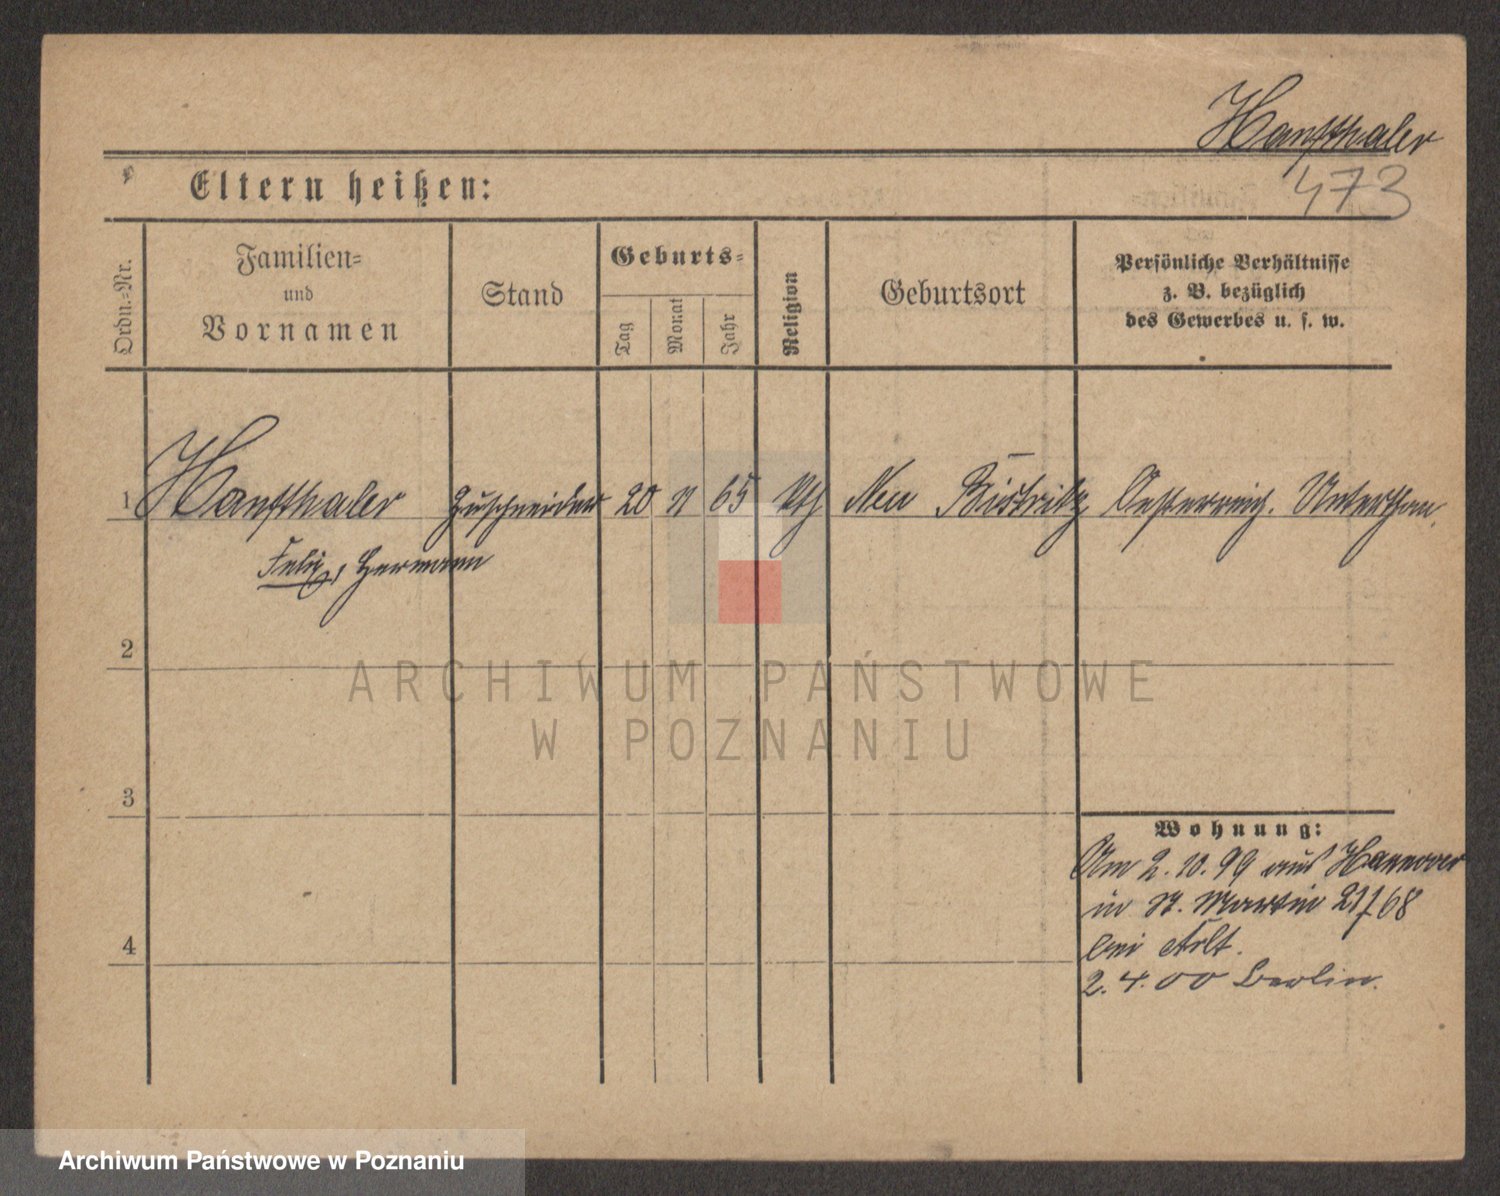 Hanfthaler
473
Eltern heißen:
Ordn.-Nr.
Familien-
und
Vornamen
Stand
Geburts-
Tag
Monat
Jahr
Religion
Geburtsort
Persönliche Verhältnisse
z. B. bezüglich
des Gewerbes u. s. w.
1 Hanfthaler Zuschneider 20 11 65 kth Neu Bistritz Oesterreich. Unterthan.
Felix, Hermann
2
ARCHIWUM PAŃSTWOWE
W POZNANIU
3
Wohnung:
Am 2.10.99 aus Hannover
in St. Martin 68
4
bei Arlt.
2.4.00 Berlin.
Archiwum Państwowe w Poznaniu